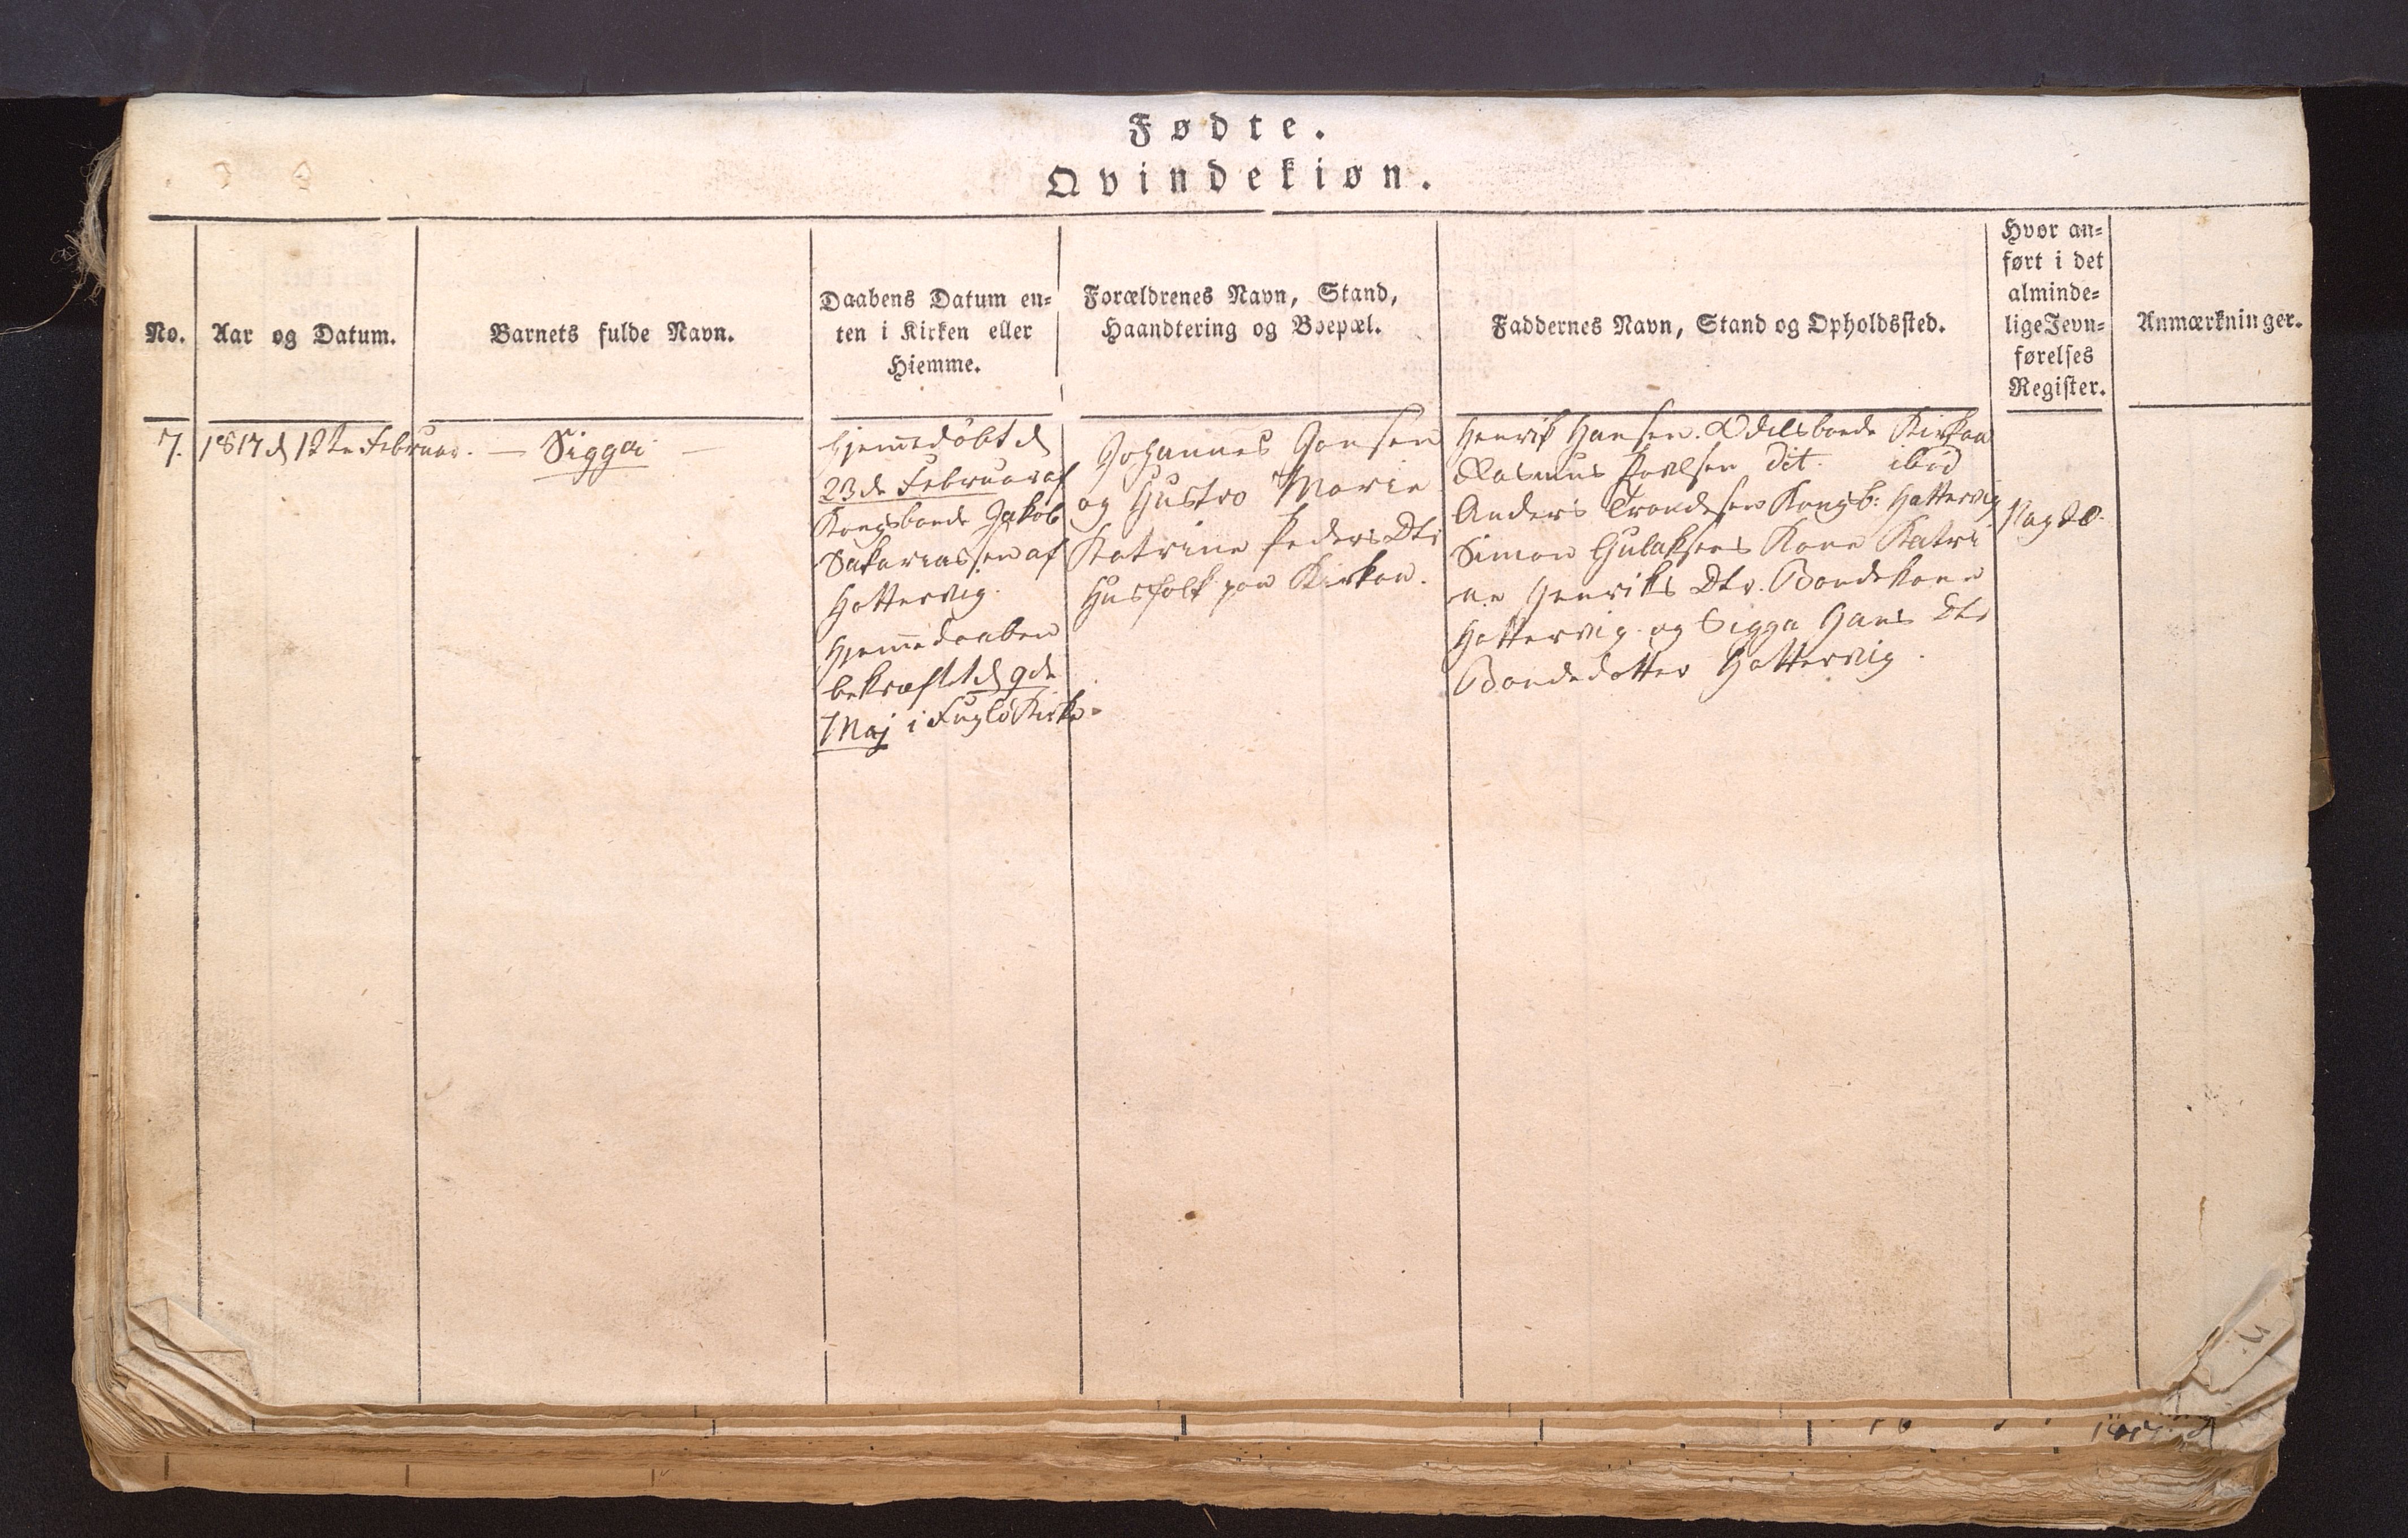 Fødte.
Qvindekiøn.
No.
Aar og Datum.
Barnets fulde Navn.
Daabens Datum en-
ten i Kirken eller
Hiemme.
Forældrenes Navn, Stand,
Haandtering og Boepæl.
Faddernes Navn, Stand og Opholdssted.
Hvor an-
ført i det
alminde-
lige Jevn-
førelses
Register.
Anmærkninger.
7.
1817 d 12te Februar.
— Sigga —
Hjemedøbt d
23de Februar af
Kongsbonde Jakob
Sakariassen af
Hattervig.
Hjemedaaben
bekræftet d 9de
Maj i Fuglø Kirke.
Johannes Joensen
og Hustro Marie
Katrine Peders Dtr
Husfolk paa Kirken.
Henrik Hansen. Odelsbonde Kirken
Rasmus Poulsen dit. ibid
Anders Trondesen Kongsb: Hattervig
Simon Gulaksens Kone Katri
ne Henriks Dtr. Bondekone
Hattervig og Sigga Hans Dtr
Bondedatter Hattervig.